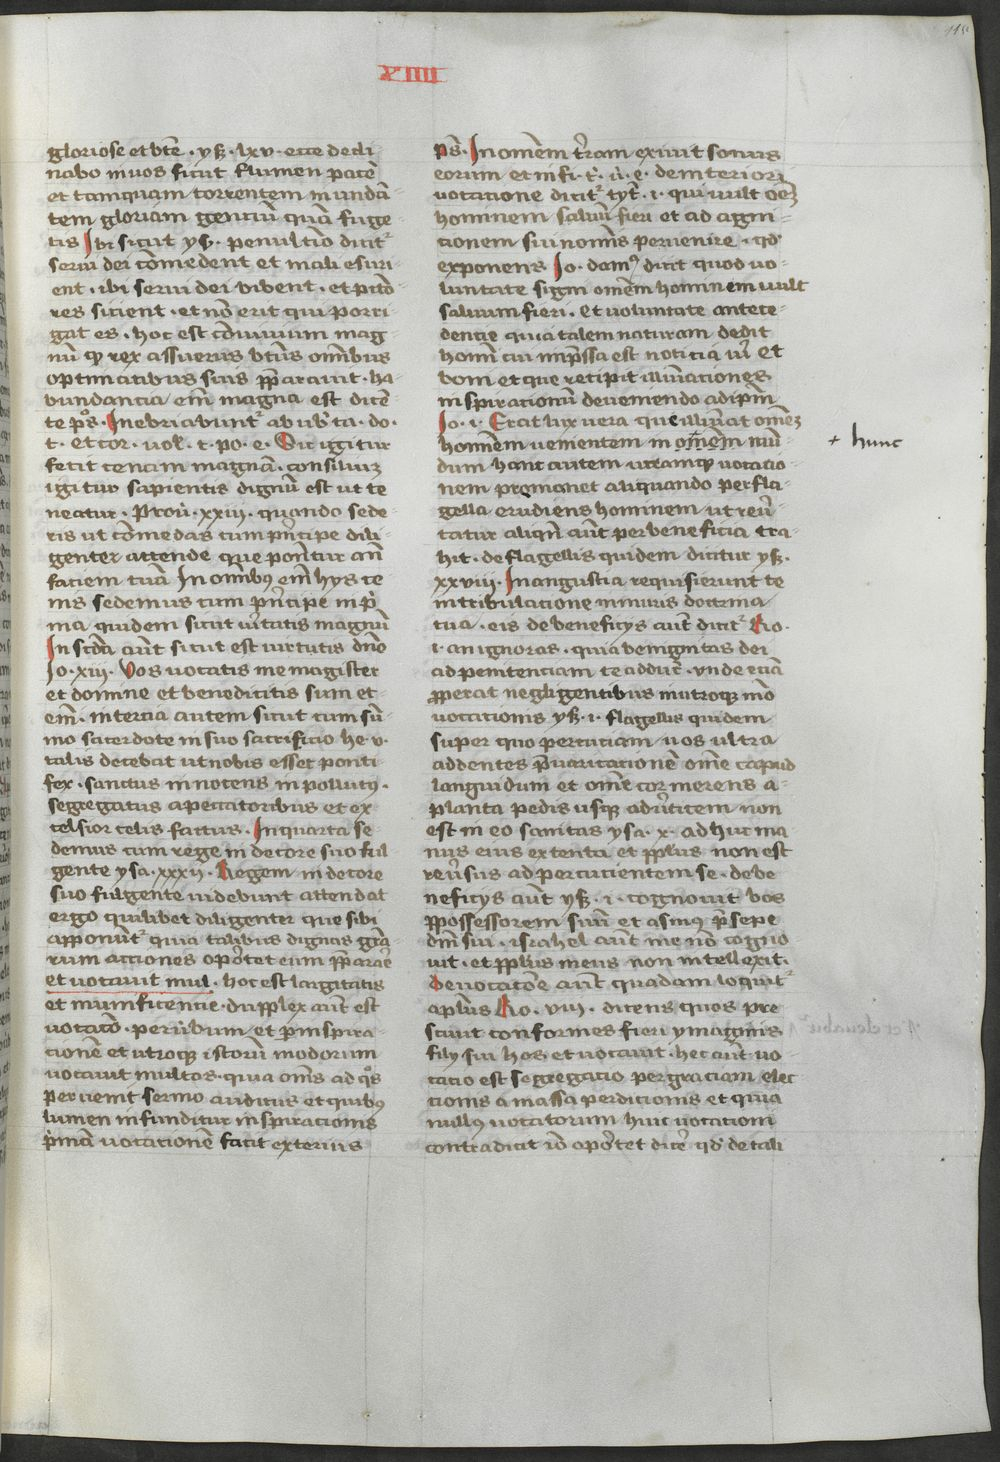 115
XIIII
gloriose et bt̄e · ysȝ · lxv · ecce decli
nabo in vos sicut flumen pacē
et tamquam torrentem in undā-
tem gloriam genciū quā suge-
tis Ibi sicut ys · penultīo dicit᷑
serui dei cōmedent et mali esuri-
ent · ibi serui dei bibent · et pctō-
res sicient · et nō erit qui porri-
gat es · hoc est cōuiuium mag-
nū qđ rex assuerus
optimatibus suis p̄parauit · ha-
bundancia em̄ magna est dicē-
te ps̄ · Inebriabunt᷑ ab vb̾ta · do ·
t · et tor · uol · t · po · e · Sic igitur
fecit cenam magnā · consiliuȝ
igitur sapientis dignū est ut te
neatur · Prou̾ · xxiii · quando sede-
ris ut cōmedas cum prīcipe dili-
genter attende que ponūtur an̄
faciem tuā In omībꝰ em̄ hys ce
nis sedemus cum prīcipe in pͥ
ma quidem sicut u̾itatis magnū
In scd̄a aūt sicut est uirtutis dn̄o
Io · xiii · Vos vocatis me magister
et domine et benedicitis sum et-
em̄ · in tercia autem sicut cum sū-
mo sacerdote in suo sacrificio he · v ·
talis decebat ut nobis esset ponti
fex · sanctus innocens inpollutꝰ ·
segregatus a peccatoribus et ex
celsior celis factus · In quarta se-
demus cum rege in decore suo ful
gente ysa · xxxiij · Regem in decore
suo fulgente videbunt attendat
ergo quilibet diligenter que sibi
apponūt᷑ quia talibus dignas grā-
rum acciones oportet eum p̄parare
et vocauit mul · hoc est largitatis
et munificencie · dupplex aūt est
vocatō · per ubum et per inspira-
cionē et utroqȝ istorū modorum
vocauit multos · quia om̄s ad qͦs
peruenit sermo auditus et quibꝰ
lumen infunditur inspiracionis
pͥmā vocacionē facit exterius
ps̄ · In omem t̾ram exiuit sonus
eorum et in fi · t · u̾ · e · de interiori
vocacione dicit᷑ tyt̄ · i · qui uult oēȝ
hominem saluū fieri et ad agni-
cionem sui nomīs peruenire · qđ
exponens Io · damꝰ dicit quod uo-
luntate signi omēm hominem uult
saluum fieri · et voluntate antece-
dente quia talem naturam dedit
homī cui inp̄ssa est noticia u̾i et
boni et que recipit illūnaciones
inspiracionū deueniendo ad ipm̄
Io · i · Erat lux vera que illūnat omēȝ
hominem uenientem in omēm mū-
dum hanc autem utramqȝ vocacio-
nem promouet aliquando per fla-
gella erudiens hominem ut reu̾-
tatur aliqn̄ aūt per beneficia tra-
hit · de flagellis quidem dicitur ysȝ ·
xxviii · In angustia requisierunt te
in tribulacione murmuris doctrina
tua · eis de beneficys aūt dicit᷑ Ro ·
i · an ignoras · quia benignitas dei
ad penitenciam te adduc̄ · vnde eciā
p̱perat negligentibus in utroqȝ mō
vocacionis ysȝ · i · flagellis quidem
super quo percuciam vos ultra
addentes p̄uaricacionē om̄e capud
languidum et om̄e cor merens a-
planta pedis usqȝ ad u̾ticem non
est in eo sanitas ysa · x · ad huc ma
nus eius extenta et pp̄lus non est
reu̾sus ad percucientem se · de be
neficys aūt ysȝ · i · cognouit bos
p̱possessorem suū et asinꝰ p̄sepe
dn̄i sui · israhel aūt me nō cogno
uit · et pp̄lus meus non intellexit ·
De vocacōe aūt quadam loquit᷑
apl̄us Ro · viii · dicens quos pre
sciuit conformes fieri ymaginis
filij sui hos et vocauit · hec aūt uo-
cacio est segregacio per graciam elec
cionis a massa perdicionis et quia
nullꝰ vocatorum huic vocacioni
contradicit iō oportet dic̄e qđ de tali
+ hunc